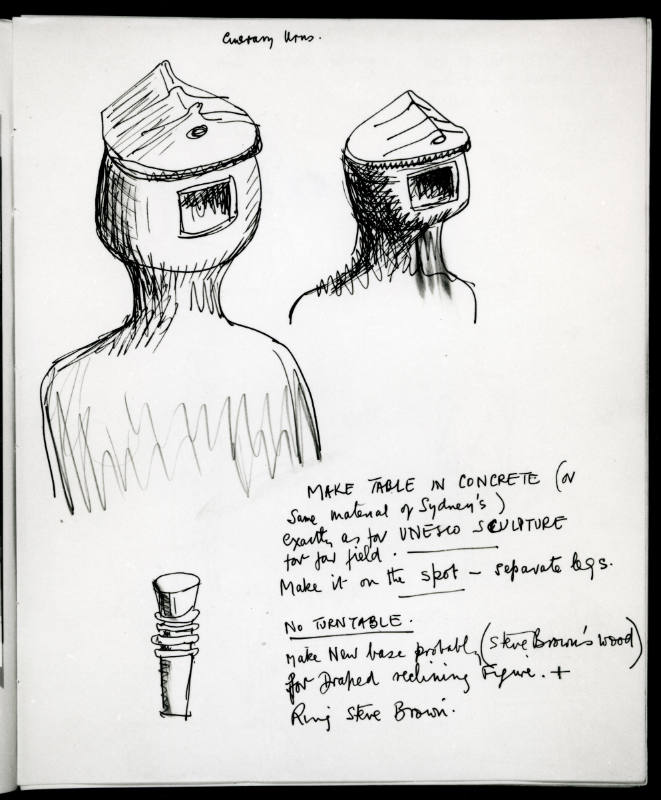 Cinerary Urns.
MAKE TABLE IN CONCRETE (or
same material of Sydney's)
exactly as for UNESCO SCULPTURE
for far field.
Make it on the spot – separate legs.
No TURNTABLE.
Make New base probably (Steve Brown's wood)
for Draped reclining Figure. +
Ring Steve Brown.